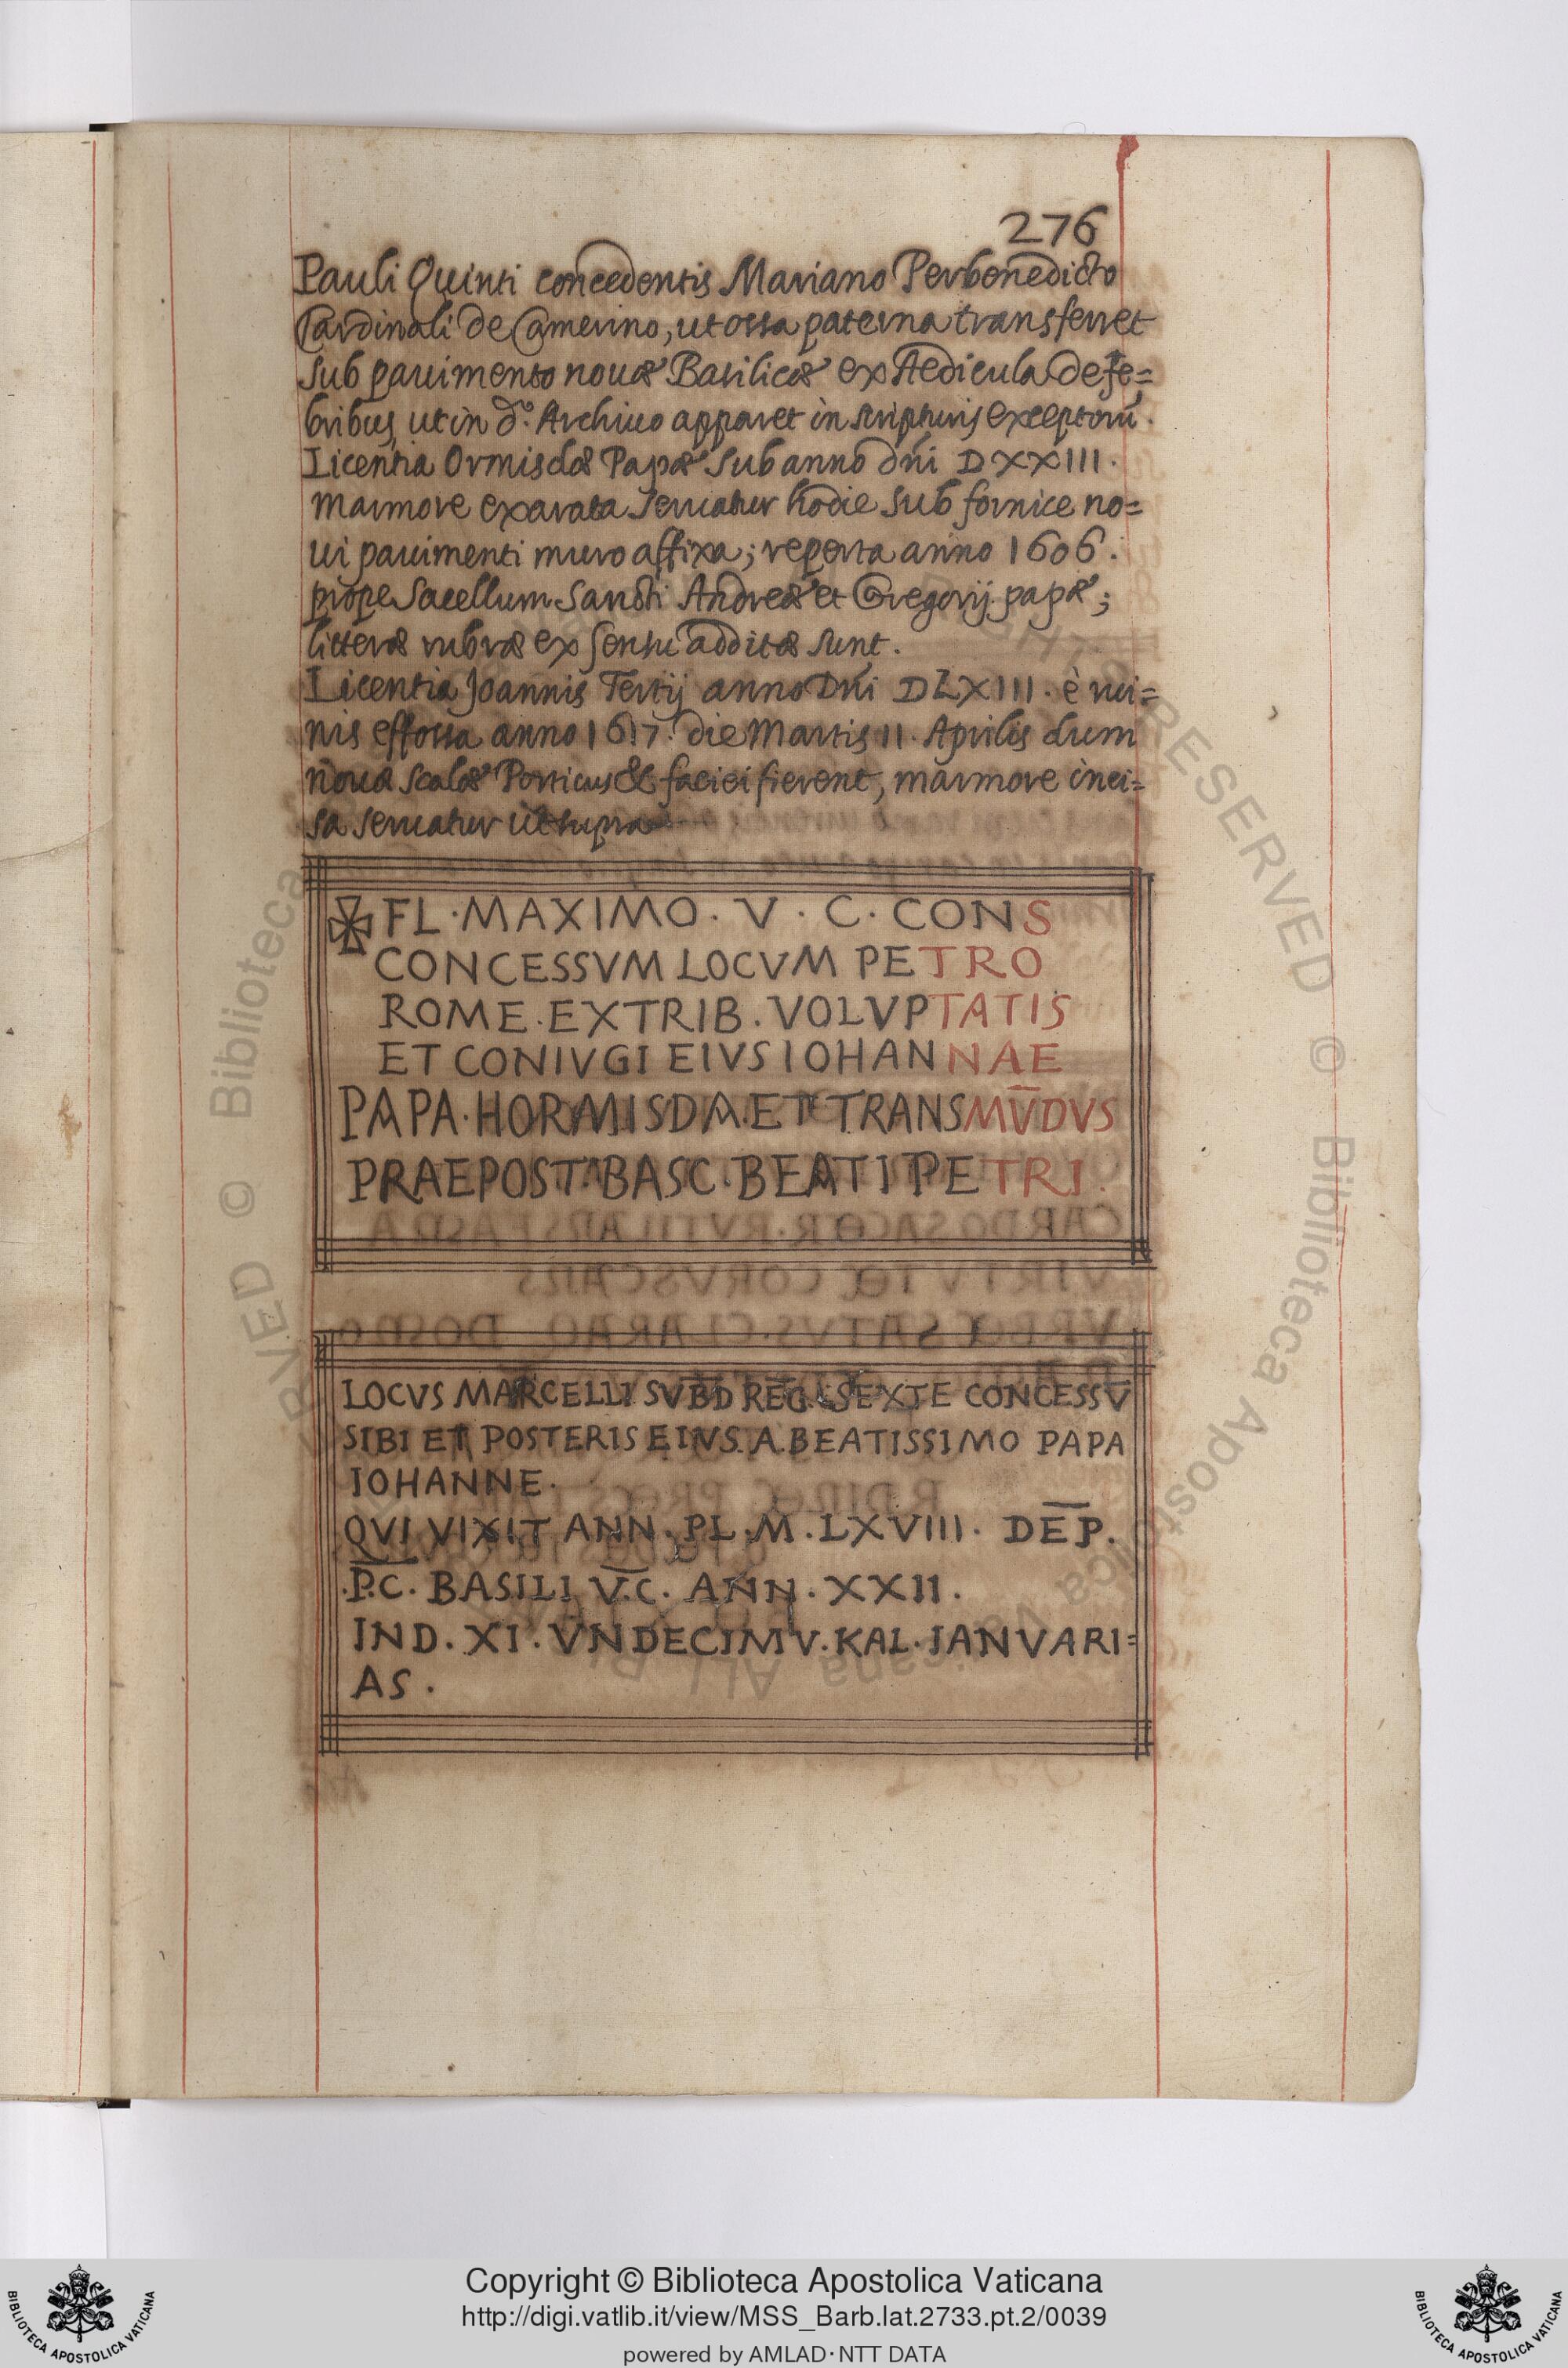 276
Pauli Quinti concedentis Mariano Perbenedicto
Cardinali de Camerino, ut ossa paterna transferret
sub pavimento novæ Basilicæ ex Aedicula de fe=
bribus, ut in d.º Archivo apparet in scripturis exceptorū.
Licentia Ormisdæ Papæ sub anno dñi DXXIII.
marmore exarata servatur hodie sub fornice no=
vi pavimenti muro affixa; reperta anno 1606.
prope sacellum Sancti Andreæ et Gregorij papæ;
litteræ rubræ ex sensu additæ sunt.
Licentia Joannis Tertij anno Dñi DLXIII. è rui=
nis effossa anno 1617. die Martis 11. Aprilis dum
novæ scalæ Porticus & faciei fierent, marmore inci=
sa servatur ut supra
✠ FL·MAXIMO. V. C. CONS
CONCESSVM LOCVM PETRO
ROME.EXTRIB.VOLVPTATIS
ET CONIVGI EIVS IOHANNAE
PAPA.HORMISDA.ET TRANSMV̄DVS
PRAEPOST.BASC.BEATI PETRI.
LOCVS MARCELLI SVB̄D REḠ. SEXTE CONCESSV̄
SIBI ET POSTERIS EIVS.A.BEATISSIMO PAPA
IOHANNE.
QVI VIXIT ANN.PL.M.LXVIII. DĒP.
.P̄.C̄. BASILI V̄.C. ANN.XXII.
IND.XI.VNDECIMV.KAL.IANVARI=
AS.
© Biblioteca Apostolica Vaticana ALL RIGHTS RESERVED
BIBLIOTECA APOSTOLICA VATICANA
Copyright © Biblioteca Apostolica Vaticana
http://digi.vatlib.it/view/MSS_Barb.lat.2733.pt.2/0039
powered by AMLAD·NTT DATA
BIBLIOTECA APOSTOLICA VATICANA